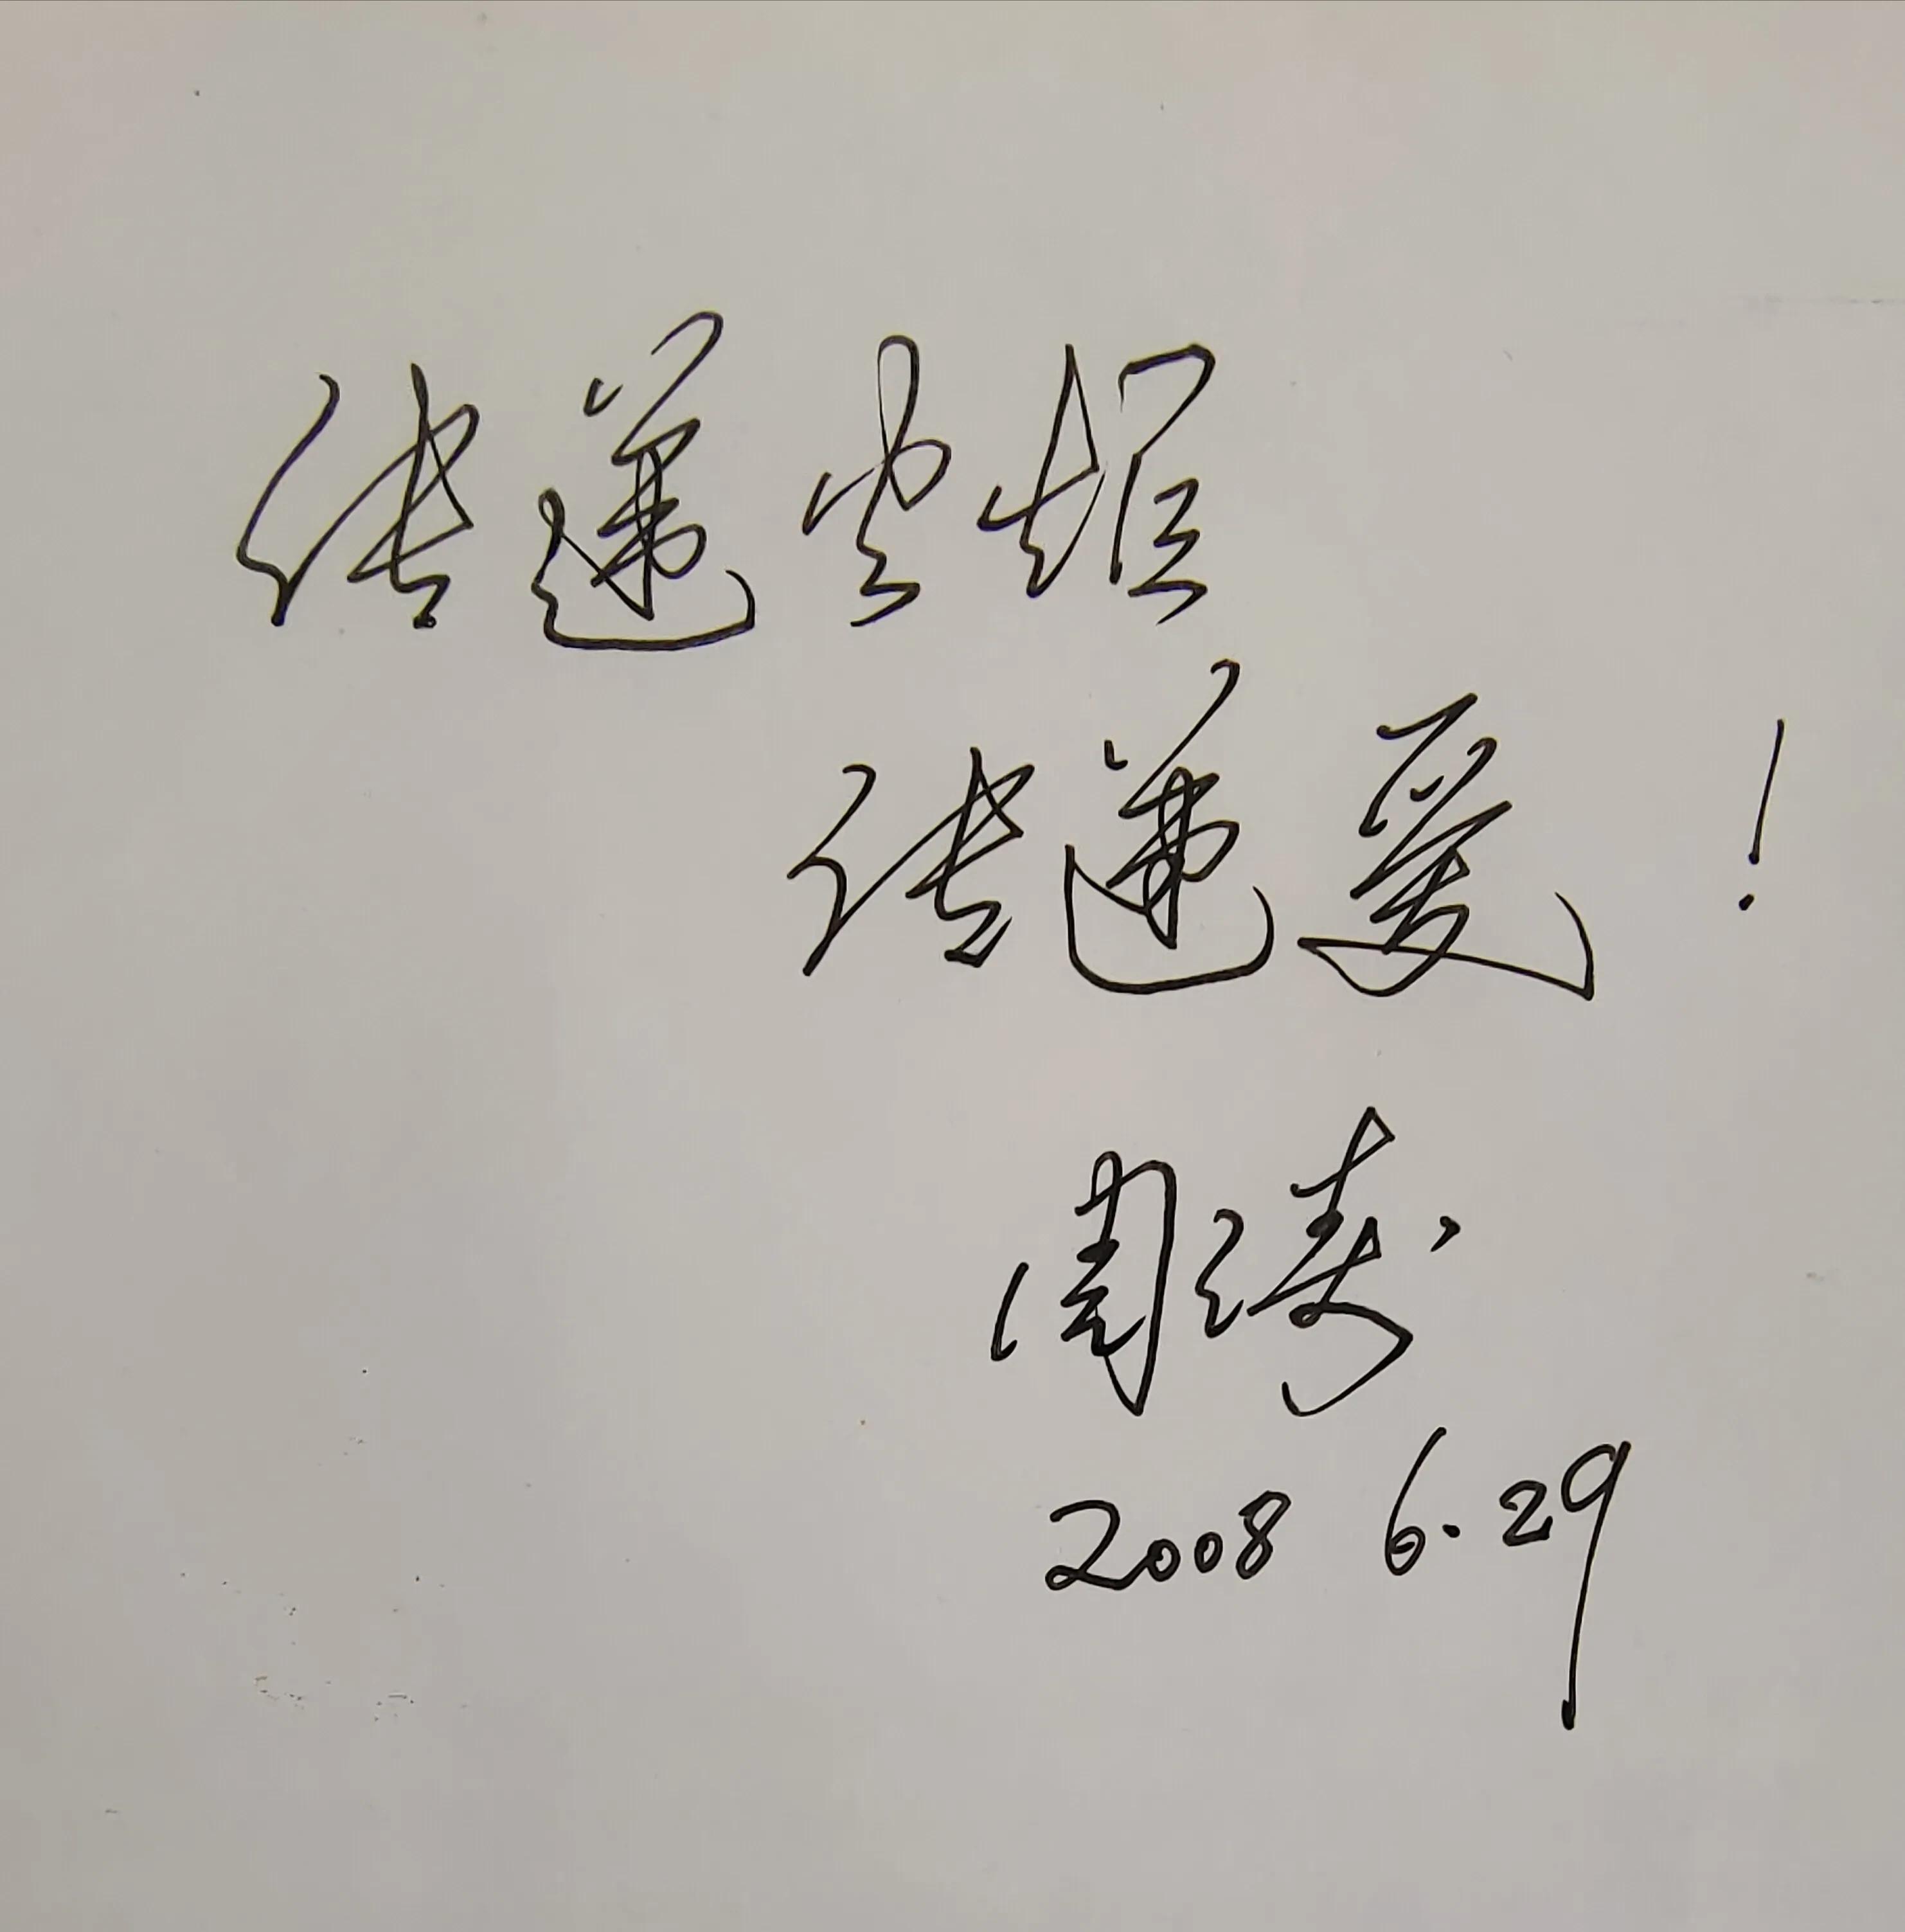 传递火炬
传递爱！
周涛
2008 6.29